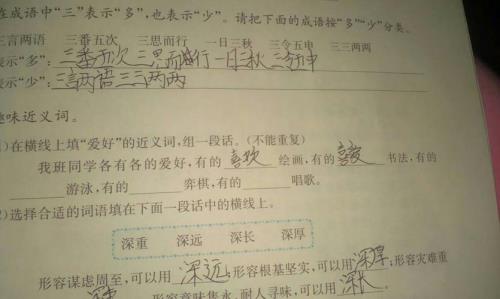 在成语中“三”表示“多”,也表示“少”。请把下面的成语按“多”“少”分类。
三言两语 三番五次 三思而行 一日三秋 三令五申 三三两两
表示“多”: 三番五次 三思而行 一日三秋 三令五申
表示“少”: 三言两语 三三两两
趣味近义词。
1)在横线上填“爱好”的近义词,组一段话。(不能重复)
我班同学各有各的爱好,有的 喜欢 绘画,有的 喜爱 书法,有的
游泳,有的 弈棋,有的 唱歌。
2)选择合适的词语填在下面一段话中的横线上。
深重 深远 深长 深厚
形容谋虑周至,可以用 深远;形容根基坚实,可以用 深厚;形容灾难重
形容意味隽永、耐人寻味,可以用 深长